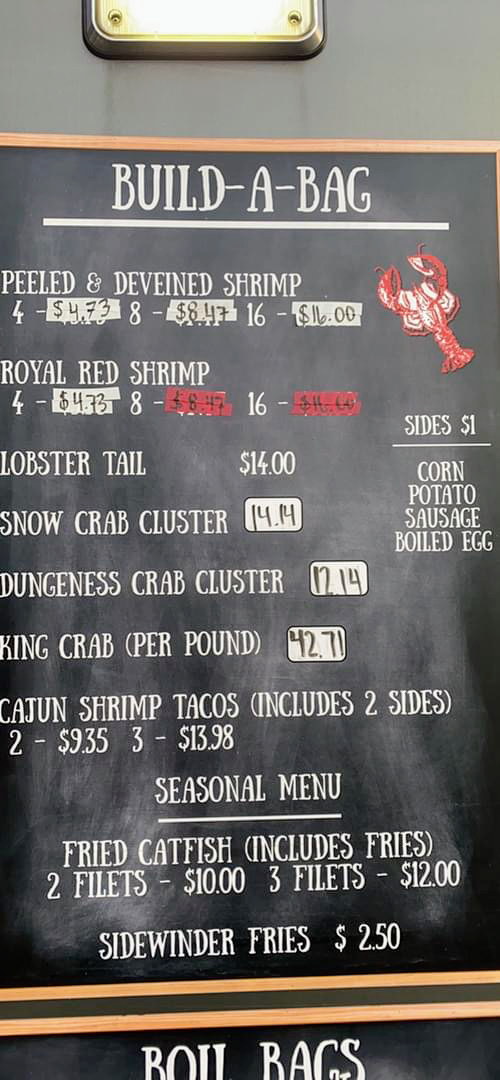 BUILD-A-BAG
PEELED & DEVEINED SHRIMP
4 - $4.73 8 - $8.47 16 - $16.00
ROYAL RED SHRIMP
4 - $4.73 8 - $8.47 16 - $16.00
SIDES $1
CORN
POTATO
SAUSAGE
BOILED EGG
LOBSTER TAIL $14.00
SNOW CRAB CLUSTER 14.14
DUNGENESS CRAB CLUSTER 12.14
KING CRAB (PER POUND) 42.71
CAJUN SHRIMP TACOS (INCLUDES 2 SIDES)
2 - $9.35 3 - $13.98
SEASONAL MENU
FRIED CATFISH (INCLUDES FRIES)
2 FILETS - $10.00 3 FILETS - $12.00
SIDEWINDER FRIES $ 2.50
BOIL BAGS